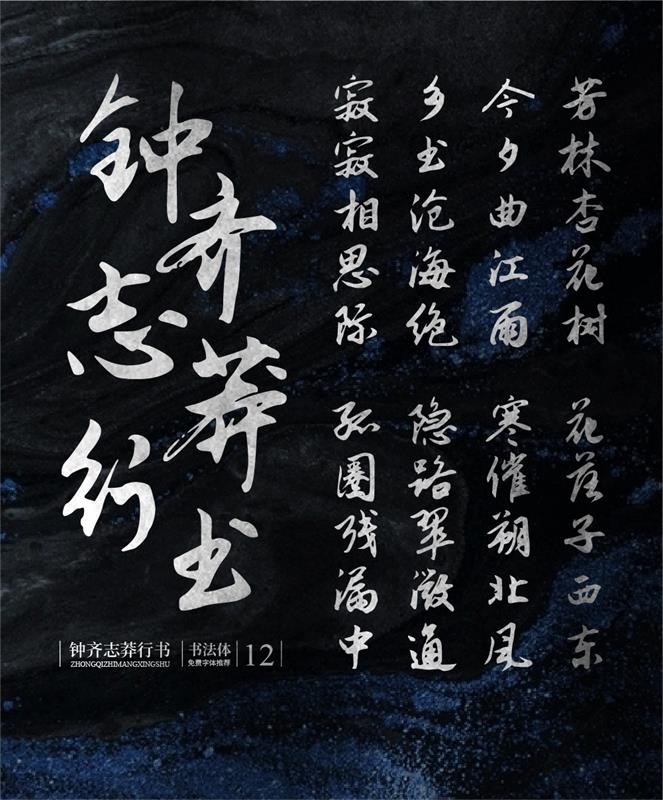 钟齐志莽行书
芳林杏花树 花落子西东
今夕曲江雨 寒催朔北风
乡书沧海绝 隐路翠微通
寂寂相思际 孤圈残漏中
钟齐志莽行书
ZHONGQIZHIMANGXINGSHU
书法体
免费字体推荐
12